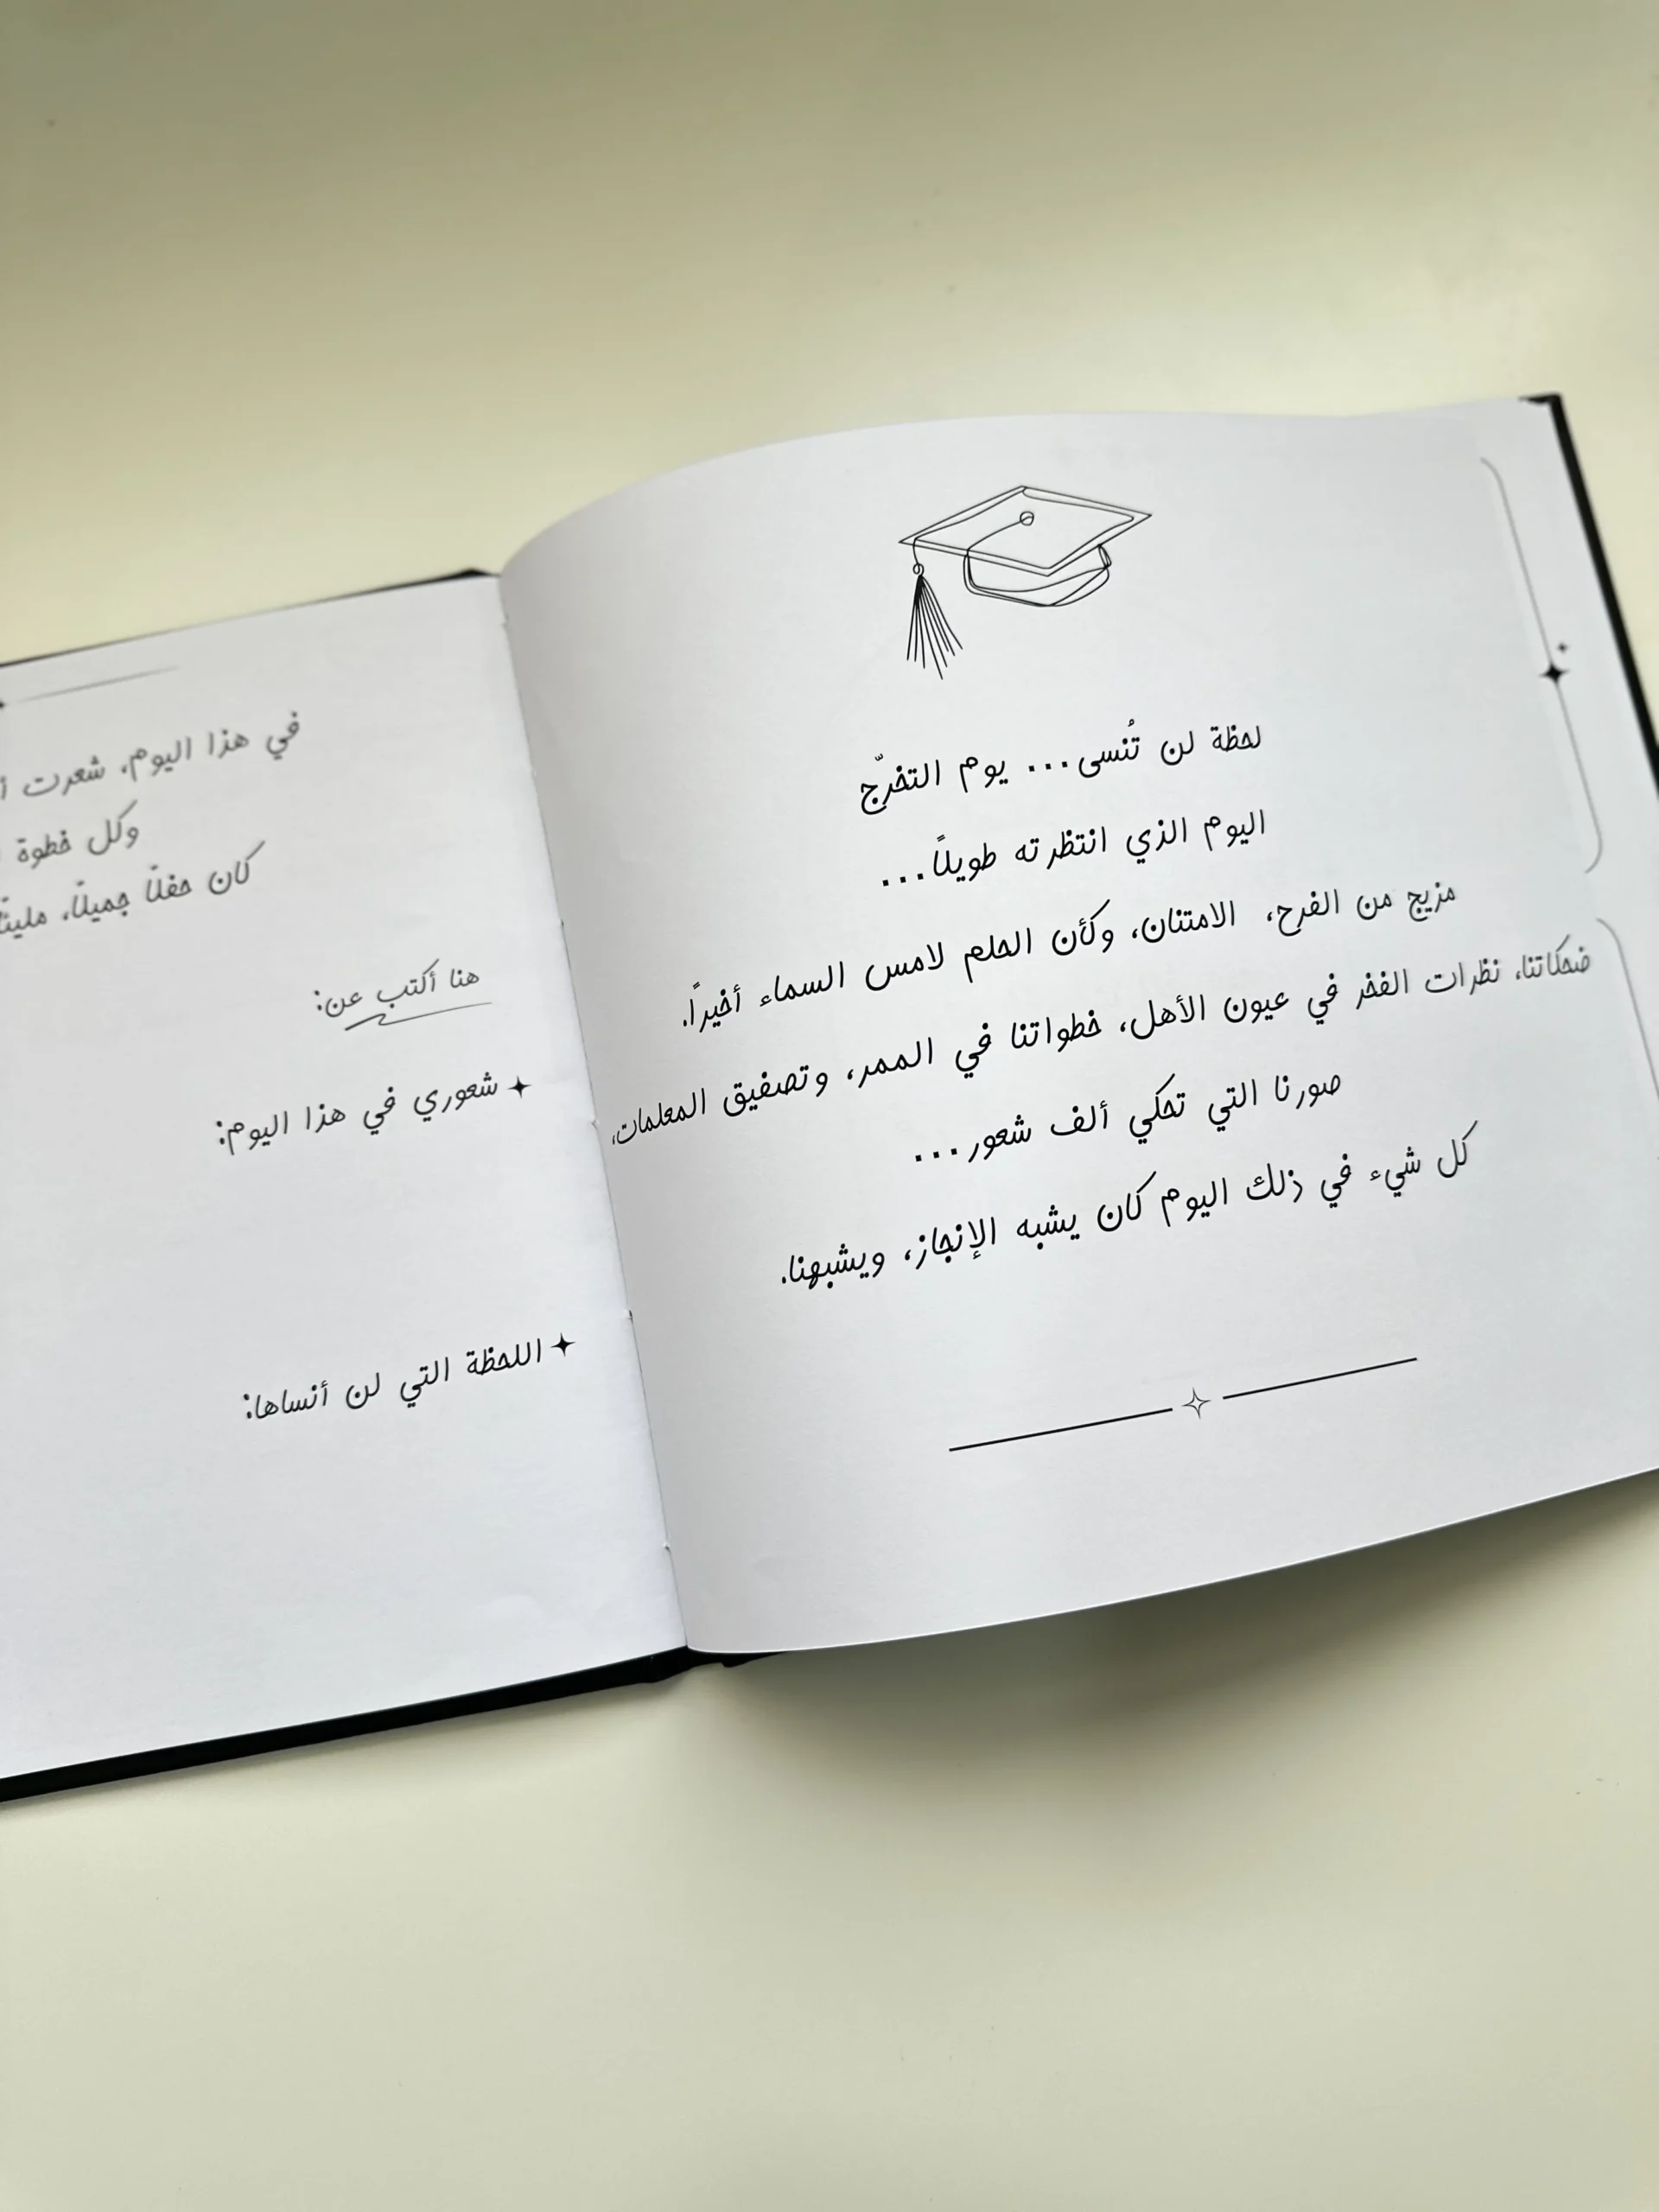 لحظة لن تُنسى... يوم التخرّج
اليوم الذي انتظرته طويلًا...
مزيج من الفرح، الامتنان، وكأن الحلم لامس السماء أخيرًا.
ضحكاتنا، نظرات الفخر في عيون الأهل، خطواتنا في الممر، وتصفيق المعلمات،
صورنا التي تحكي ألف شعور...
كل شيء في ذلك اليوم كان يشبه الإنجاز، ويشبهنا.
في هذا اليوم، شعرت
وكل خطوة
كان حفلًا جميلًا،
هنا أكتب عن:
شعوري في هذا اليوم:
اللحظة التي لن أنساها: